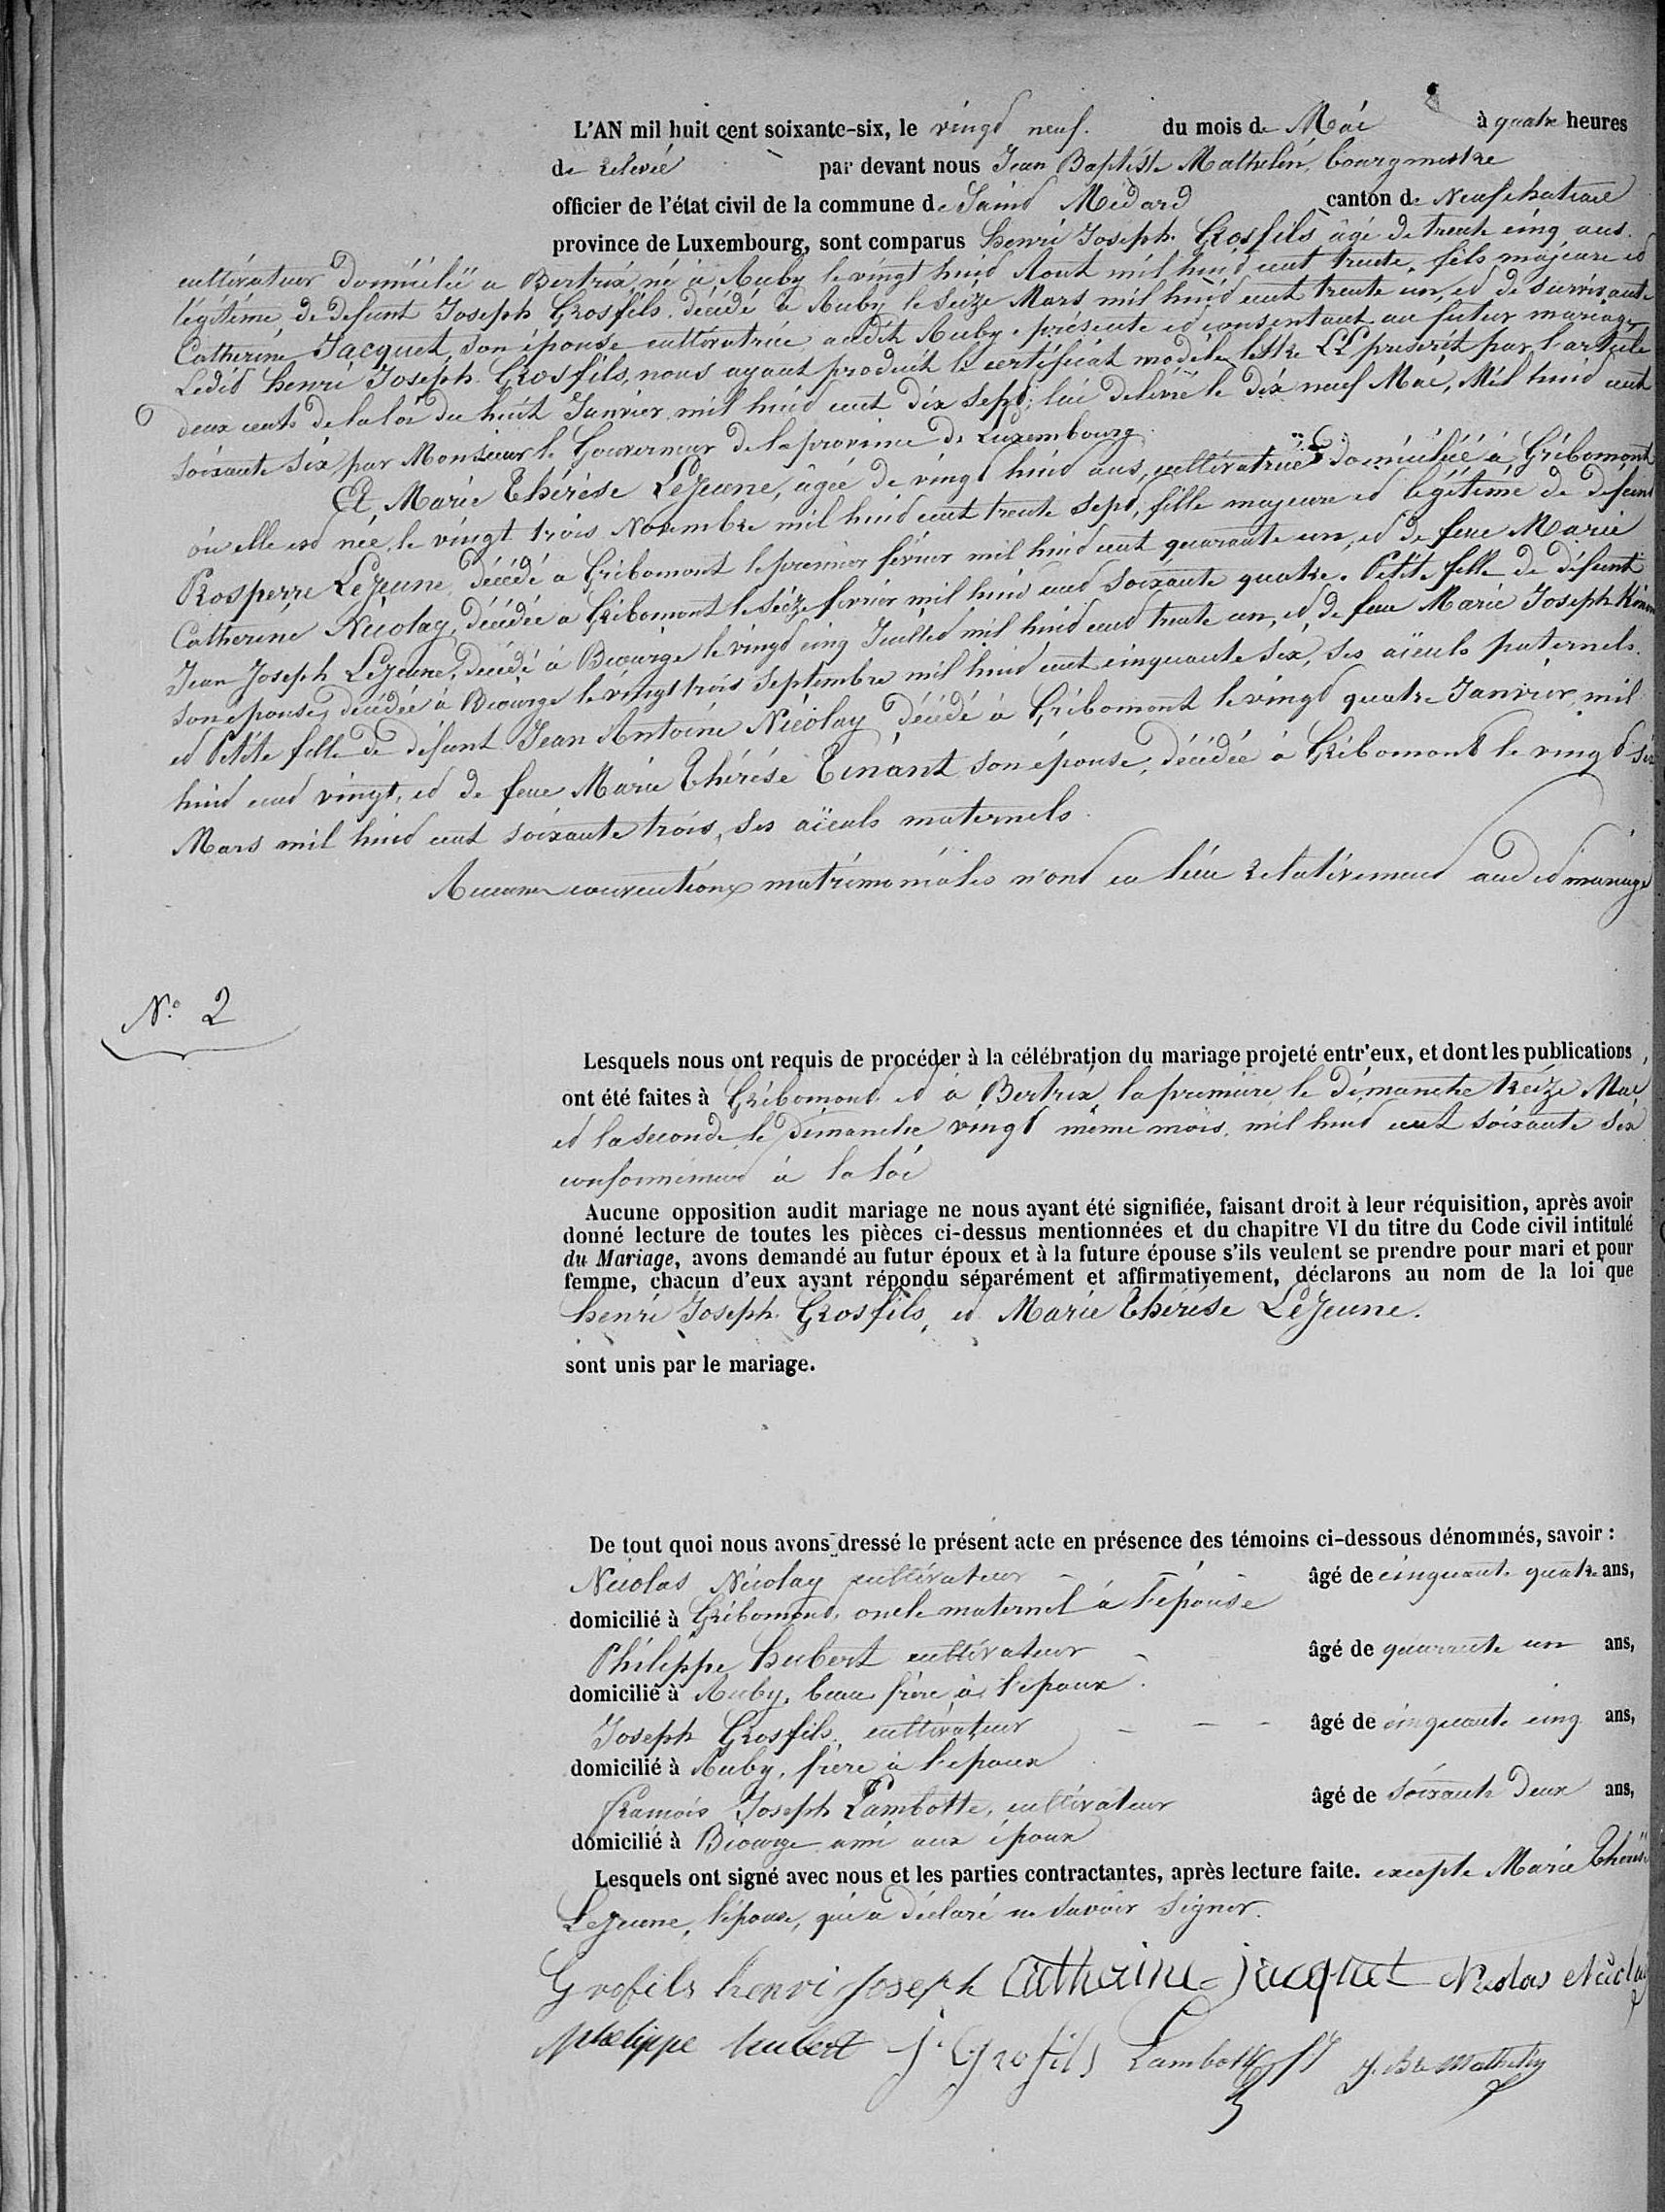 L'AN mil huit cent soixante-six, le vingt neuf. du mois de Mai à quatre heures
de relevée par devant nous Jean Baptiste Mathelin, bourgmestre
officier de l'état civil de la commune de Saint Médard canton de Neufchateau
province de Luxembourg, sont comparus henri Joseph Grosfils âgé de trente cinq ans.
cultivateur domicilié a Bertrix, né à Auby le vingt huit Aout mil huit cent trente, fils majeure et
légitime, de defunt Joseph Grosfils, décédé à Auby le seize Mars mil huit cent trente un, et de survivante
Catherine Jacquet, son épouse cultivatrice audit Auby, présente et consentant au futur mariage
Ledit henri Joseph Grosfils, nous ayant produit le certificat modèle lettre LL prescrit par l'article
deux cents de la loi du huit Janvier mil huit cent dix sept, lui delivré le dix neuf Mai, Mil huit cent
soixante six par Monsieur le Gouverneur de la province de Luxembourg.
Et Marie Thérèse LeJeune, âgée de vingt huit ans, cultivatrice domiciliée à Gribomont
où elle est née, le vingt trois Novembre mil huit cent trente sept, fille majeure et légitime de défunt
Prosperre LeJeune, décédé a Gribomont le premier février mil huit cent quarante un, et de feue Marie
Catherine Nicolay, décédée a Gribomont le seize février mil huit cent soixante quatre. Petite fille de défunt
Jean Joseph LeJeune, décédé à Biourge le vingt cinq Juillet mil huit cent trente un, et de feue Marie Joseph
son épouse, décédée à Biourge le vingt trois Septembre mil huit cent cinquante six, ses aïeuls paternels.
et Petite fille de défunt Jean Antoine Nicolay, décédé à Gribomont le vingt quatre Janvier, mil
huit cent vingt, et de feue Marie Thérèse Tinant son épouse, décédée à Gribomont le vingt six
Mars mil huit cent soixante trois, ses aïeuls maternels.
Aucune conventions matrimoniales n'ont eu lieu relativement audit mariage
N.° 2
Lesquels nous ont requis de procéder à la célébration du mariage projeté entr'eux, et dont les publications,
ont été faites à Gribomont et à Bertrix, la première le dimanche treize Mai
et la seconde le Dimanche vingt même mois, mil huit cent soixante six
conformément à la loi
Aucune opposition audit mariage ne nous ayant été signifiée, faisant droit à leur réquisition, après avoir
donné lecture de toutes les pièces ci-dessus mentionnées et du chapitre VI du titre du Code civil intitulé
du Mariage, avons demandé au futur époux et à la future épouse s'ils veulent se prendre pour mari et pour
femme, chacun d'eux ayant répondu séparément et affirmativement, déclarons au nom de la loi que
henri Joseph Grosfils, et Marie Thérèse LeJeune.
sont unis par le mariage.
De tout quoi nous avons dressé le présent acte en présence des témoins ci-dessous dénommés, savoir :
Nicolas Nicolay cultivateur âgé de cinquante quatre ans,
domicilié à Gribomont, oncle maternel à l'épouse
Philippe hubert cultivateur âgé de quarante un ans,
domicilié à Auby, beau frère à l'epoux.
Joseph Grosfils, cultivateur âgé de cinquante cinq ans,
domicilié à Auby, frère à l'epoux
francois Joseph Lambotte, cultivateur âgé de soixante deux ans,
domicilié à Biourge ami aux époux
Lesquels ont signé avec nous et les parties contractantes, après lecture faite. excepte Marie Thérèse
LeJeune, l'épouse, qui a déclaré ne savoir signer.
Grofils henri joseph Catherine jacquet Nicolas Nicolay
philippe hubert j Grofils Lambotte f J J. Bte Mathelin